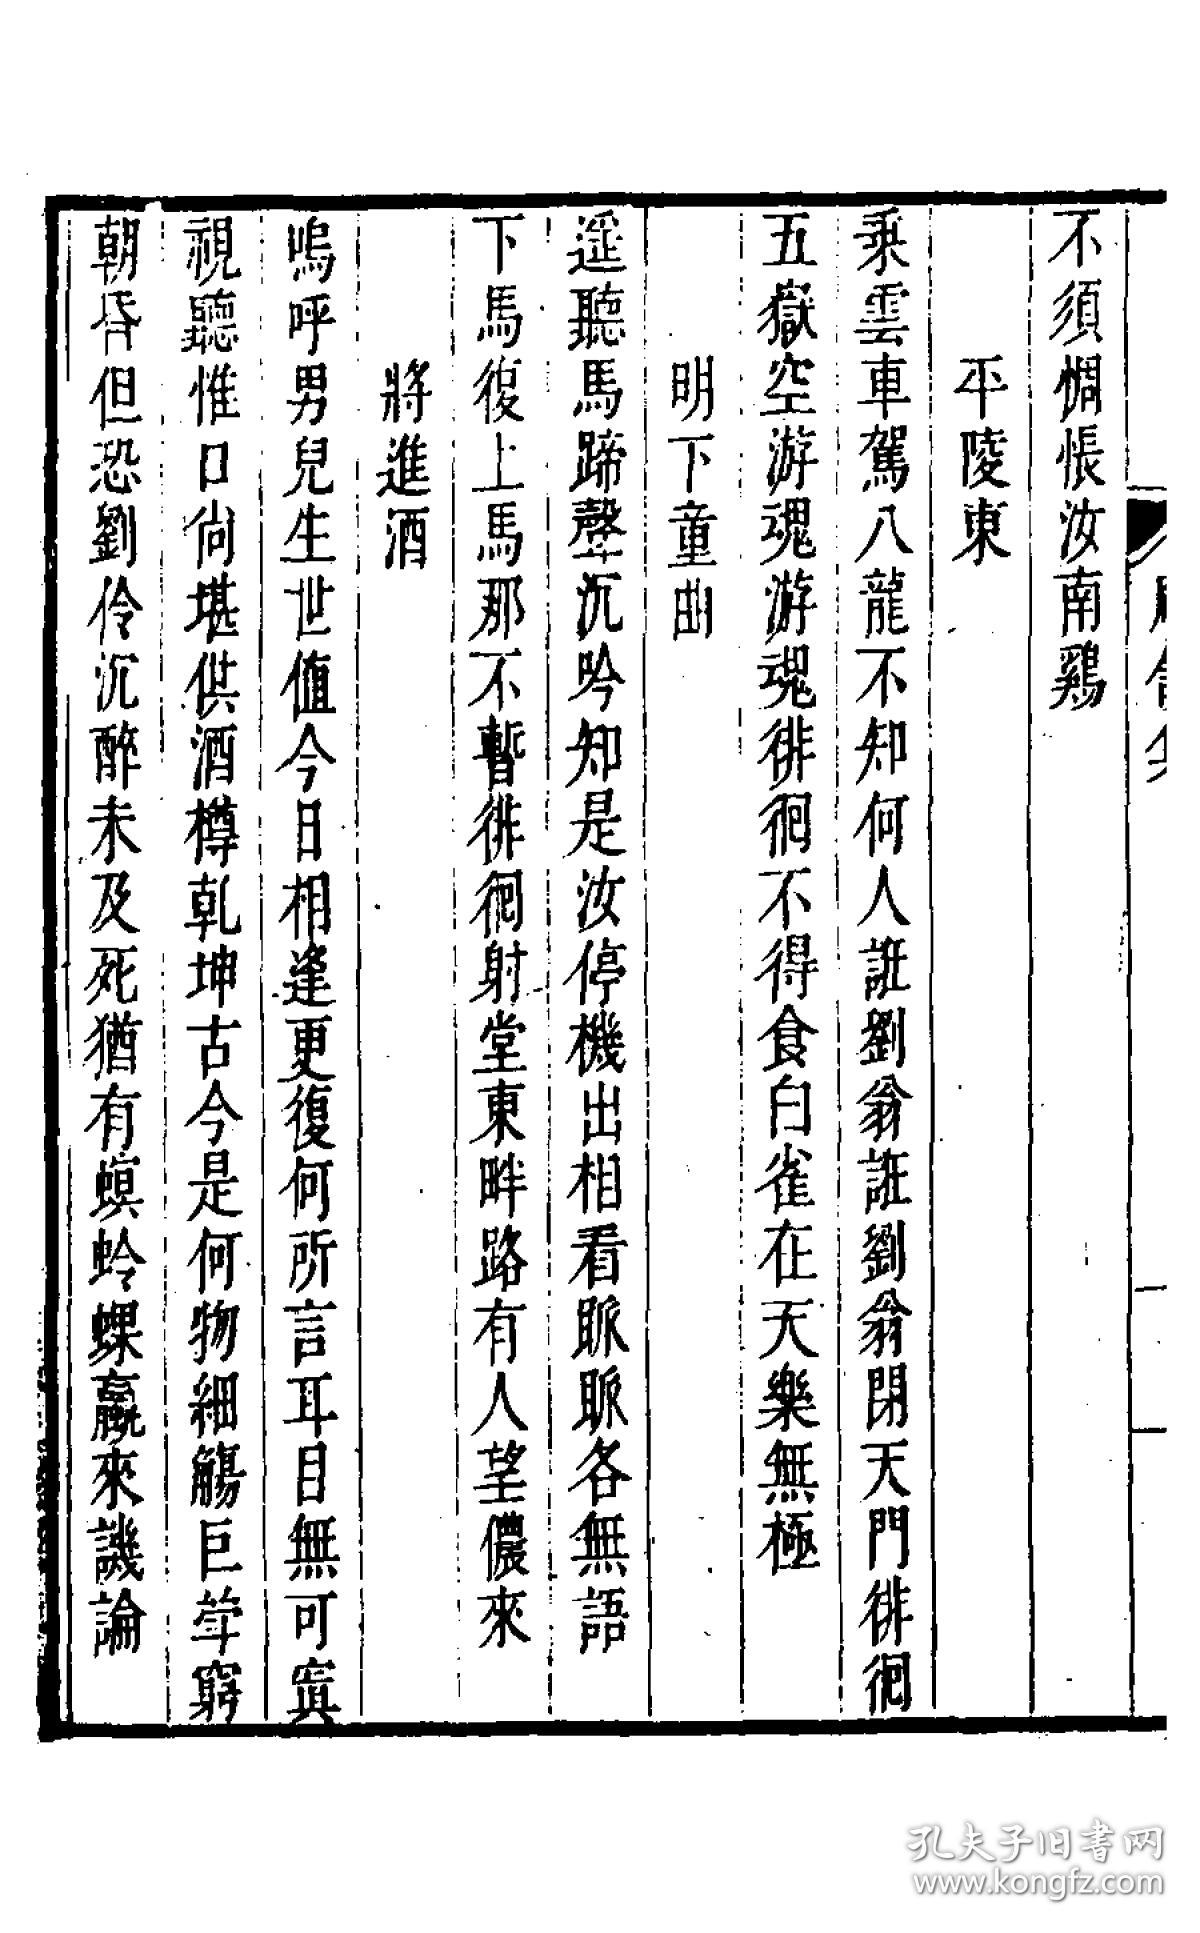 不須惆悵汝南鷄
平陵東
乘雲車駕八龍不知何人誑劉翁誑劉翁閉天門徘徊
五嶽空游魂游魂徘徊不得食白雀在天樂無極
明下童曲
遥聽馬蹄聲沉吟知是汝停機出相看脈脈各無語
下馬復上馬那不暫徘徊射堂東畔路有人望儂來
將進酒
嗚呼男兒生世値今日相逢更復何所言耳目無可寘
視聽惟口尙堪供酒樽乾坤古今是何物細觴巨斝窮
朝昏但恐劉伶沉醉未及死猶有螟蛉蜾蠃來譏論
孔夫子旧書网
www.kongfz.com